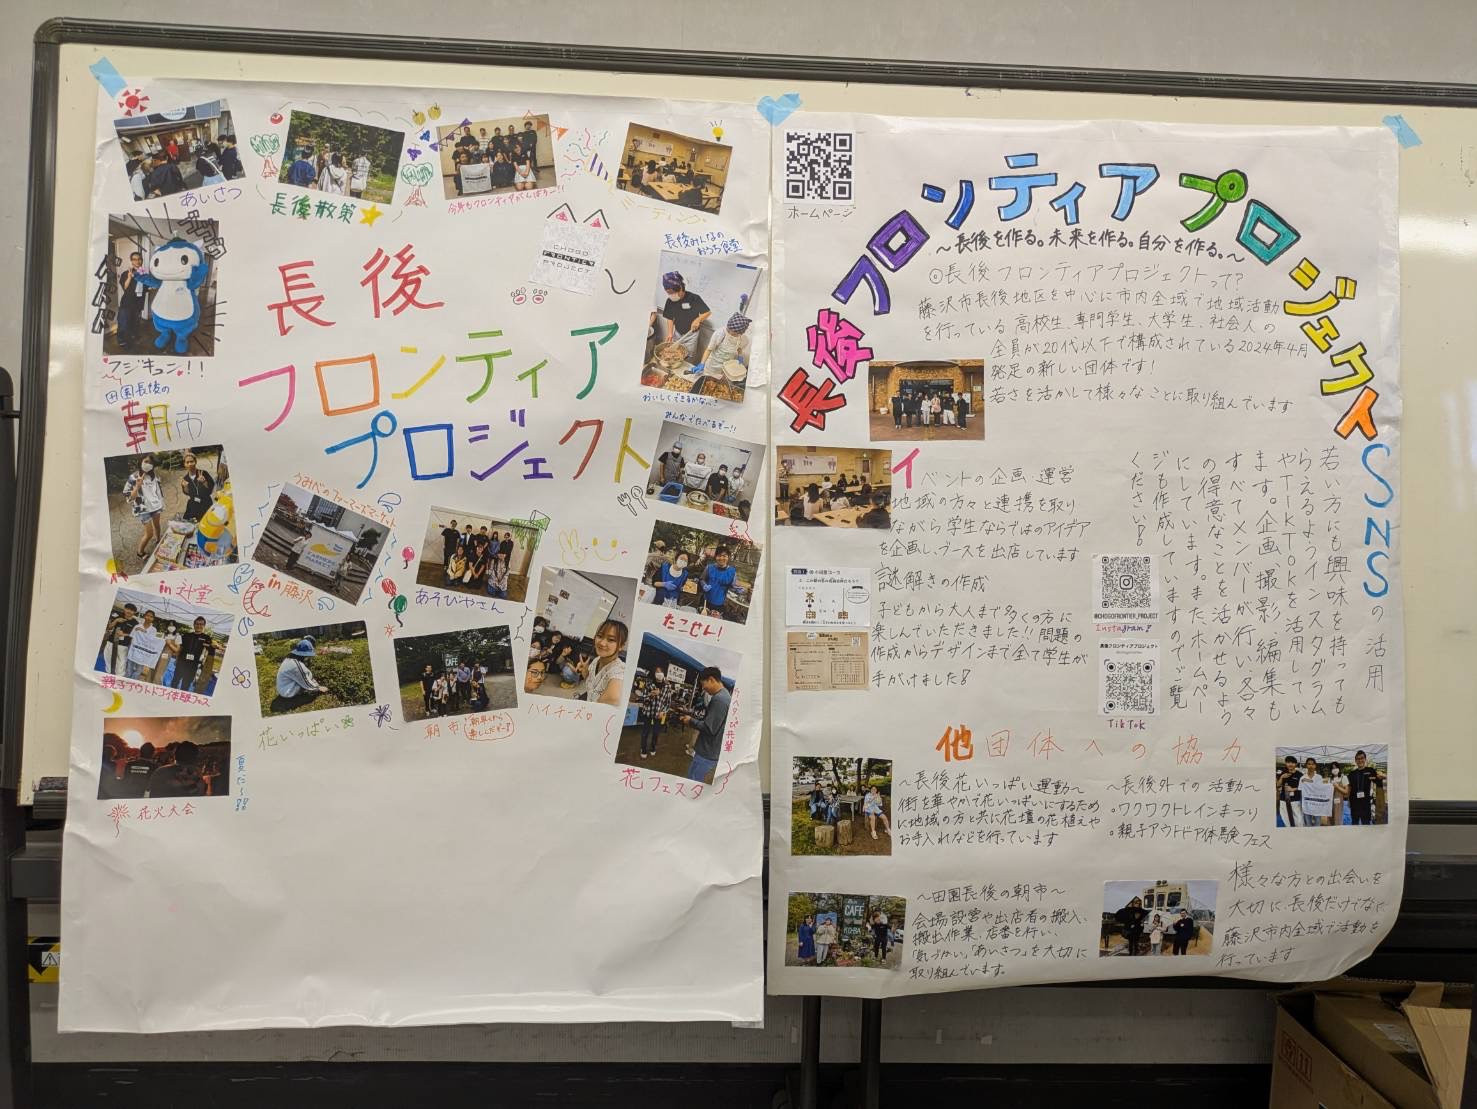 あいさつ
長後散策
今年もフロンティアがんばるぞー!!
ミーティング
CHOGO
FRONTIER
PROJECT
長後みんなの
おうち食堂
フジキュン!!
長後
フロンティア
プロジェクト
おいしくできるかな
みんなでたべるぞー!!
田園長後の
朝市
うみべのファーマーズマーケット
in 辻堂
in 藤沢
あそびやさん
たこせん!
親子アウトドア体験フェス
花いっぱい
朝市
朝早くから
楽しんだぞー!
ハイチーズ
花フェスタ
花火大会
夏だ〜!!
ホームページ
長後フロンティアプロジェクト
〜長後を作る。未来を作る。自分を作る。〜
◎長後フロンティアプロジェクトって?
藤沢市長後地区を中心に市内全域で地域活動
を行っている 高校生、専門学生、大学生、社会人の
全員が20代以下で構成されている2024年4月
発足の新しい団体です!
若さを活かして様々なことに取り組んでいます
イベントの企画・運営
地域の方々と連携を取り
ながら学生ならではのアイデア
を企画し、ブースを出店しています
謎解きの作成
子どもから大人まで多くの方に
楽しんでいただきました!!問題の
作成からデザインまで全て学生が
手がけました!
SNSの活用
若い方にも興味を持っても
らえるようインスタグラム
やTikTokを活用してい
ます。企画、撮影、編集も
すべてメンバーが行い、各々
の得意なことを活かせるよう
にしています。また、ホームペー
ジも作成していますのでご覧
ください!
@CHOGOFRONTIER_PROJECT
Instagram
長後フロンティアプロジェクト
TikTok
他団体への協力
〜長後花いっぱい運動〜
街を華やかで花いっぱいにするため
に地域の方と共に花壇の花植えや
お手入れなどを行っています
〜長後外での活動〜
・ワクワクトレインまつり
・親子アウトドア体験フェス
〜田園長後の朝市〜
会場設営や出店者の搬入、
搬出作業、店番を行い、
「気づかい」「あいさつ」を大切に
取り組んでいます。
様々な方との出会いを
大切に、長後だけでなく
藤沢市内全域で活動を
行っています
CAFE